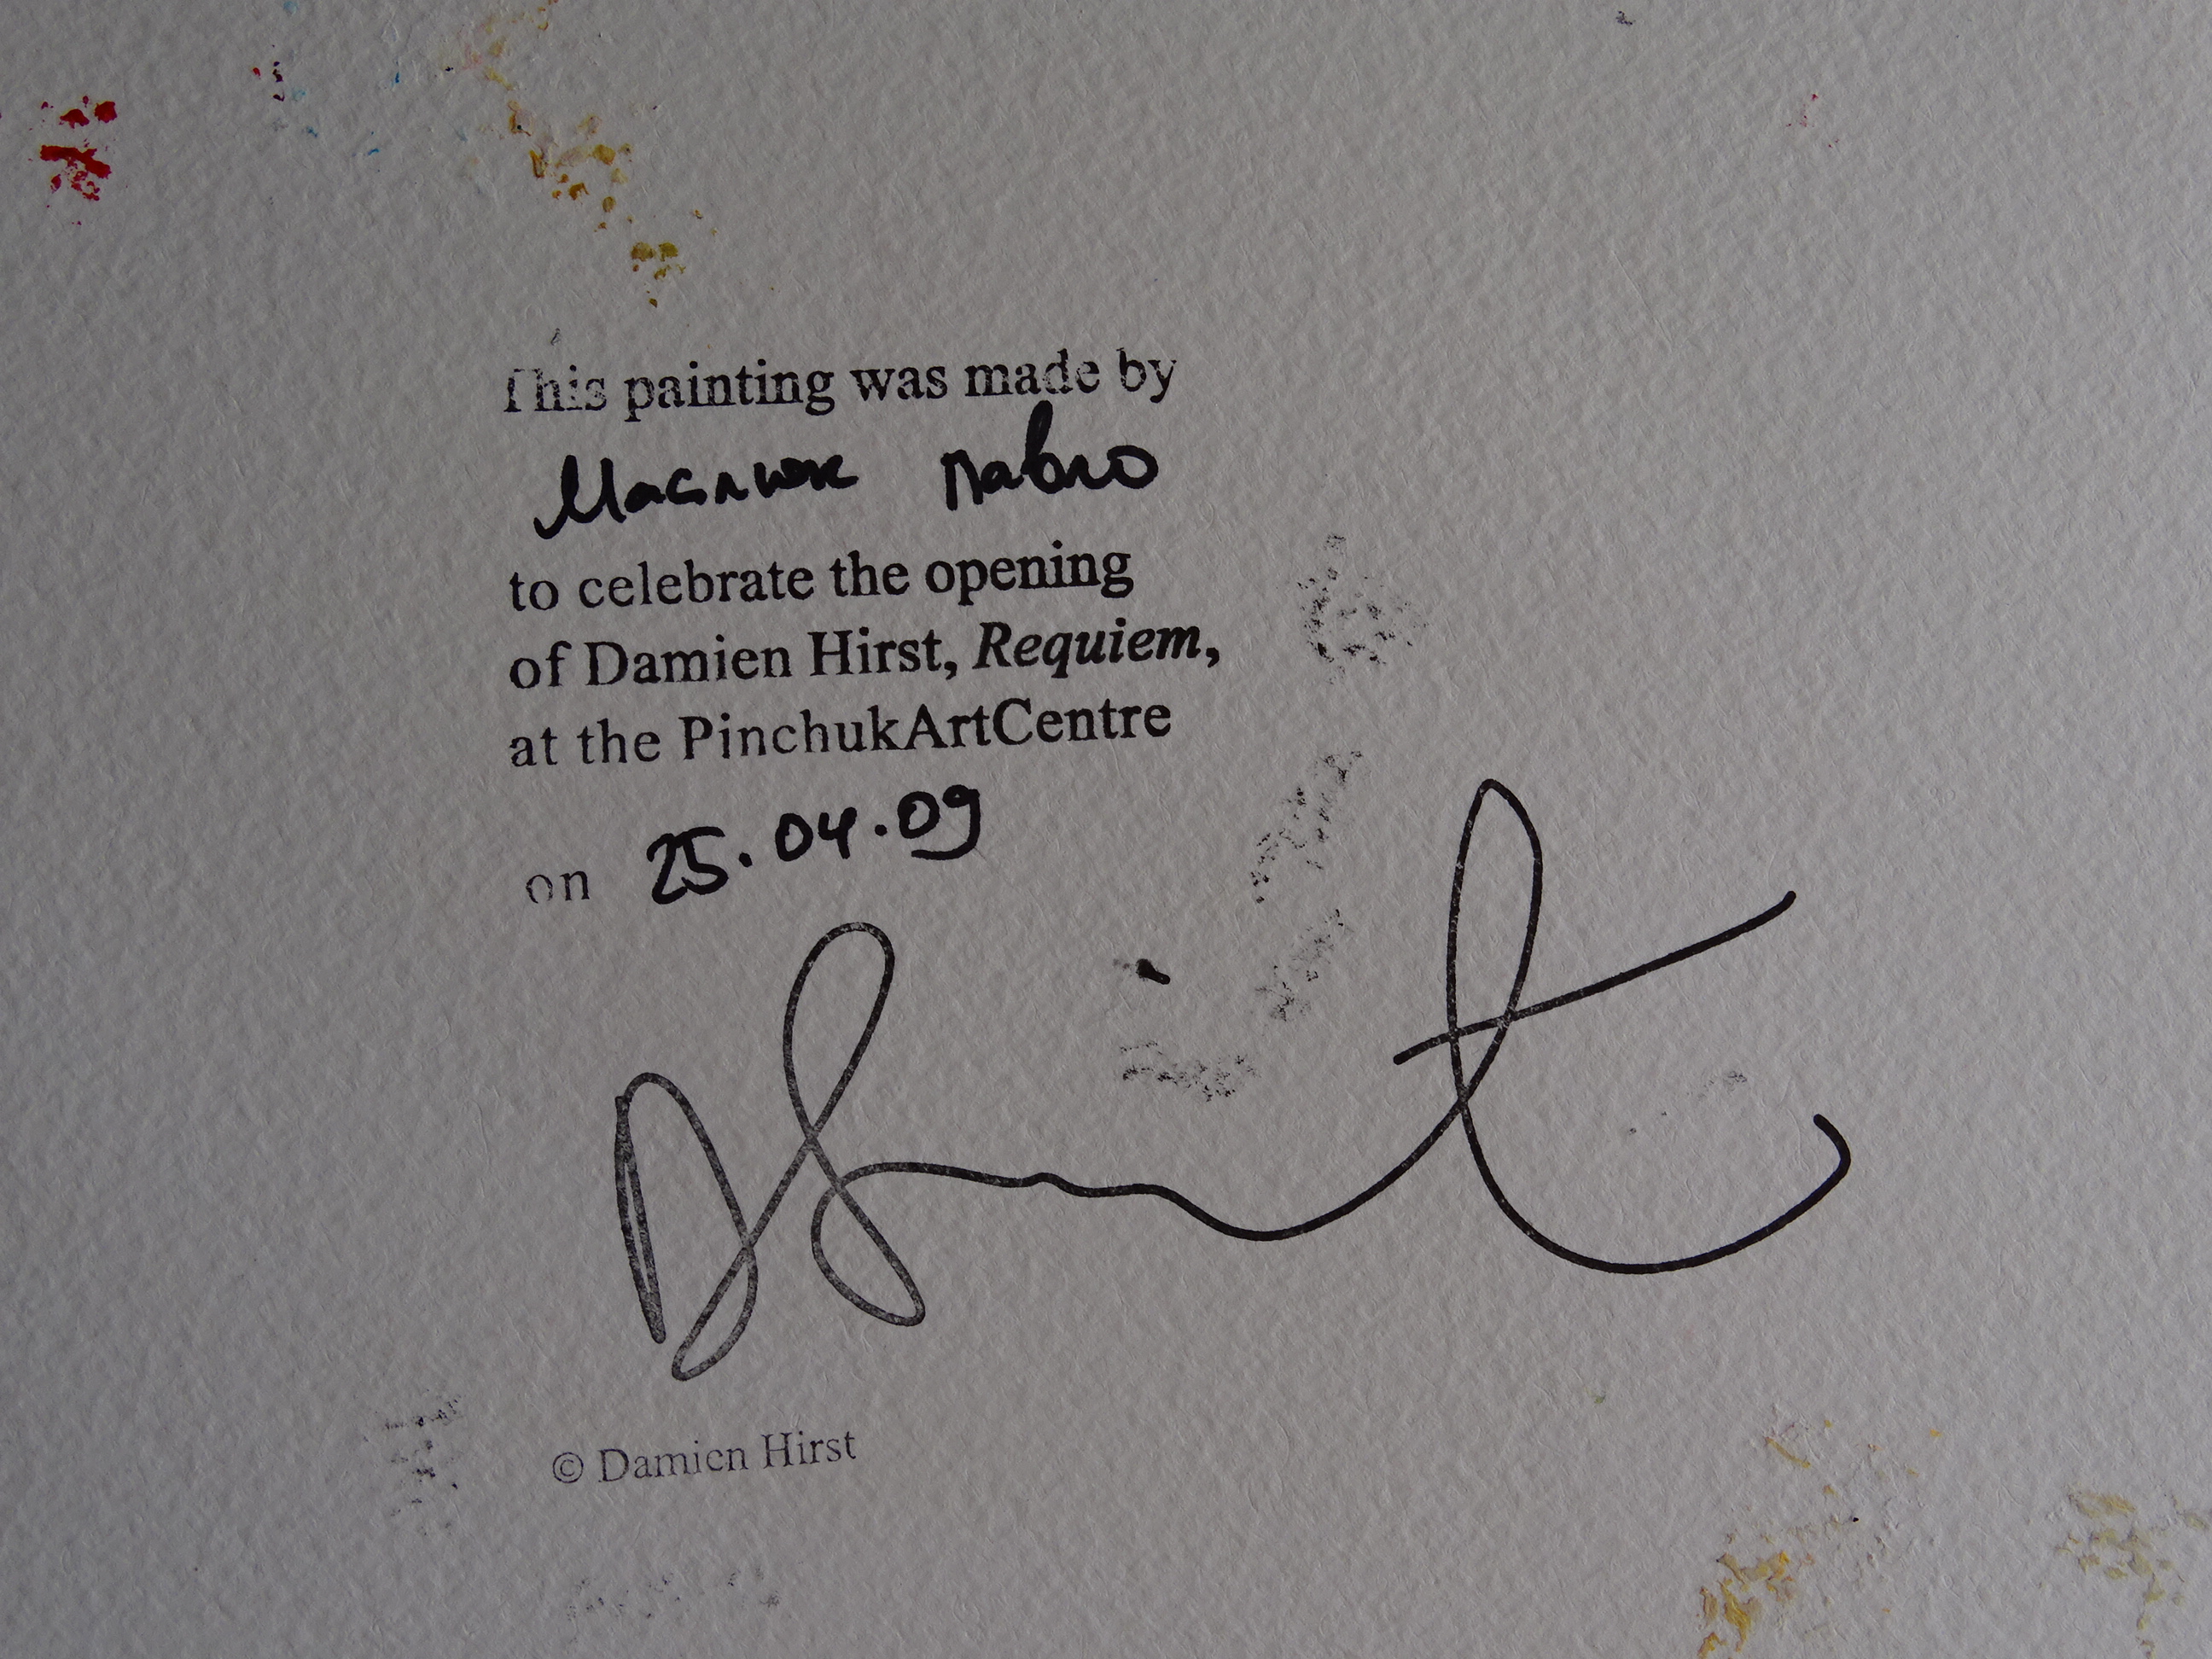 This painting was made by
Масляк Павло
to celebrate the opening
of Damien Hirst, Requiem,
at the PinchukArtCentre
on 25.04.09
© Damien Hirst